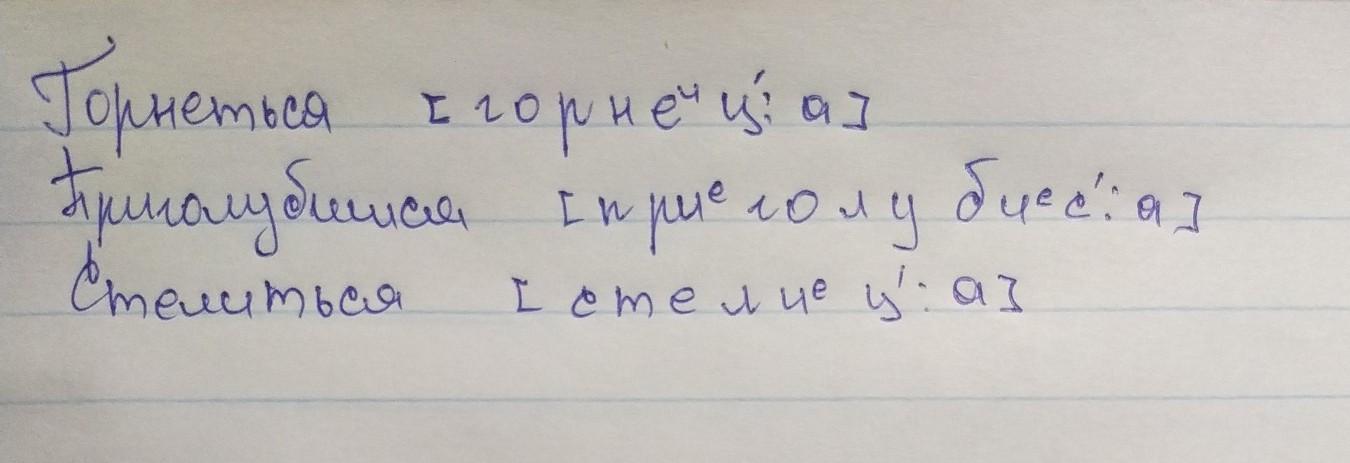 Горнеться [горнеᶦ ц′: а]
Приголубишся [приᵉ голу биᵉс′: а]
Стелиться [стелиᵉ ц′: а]